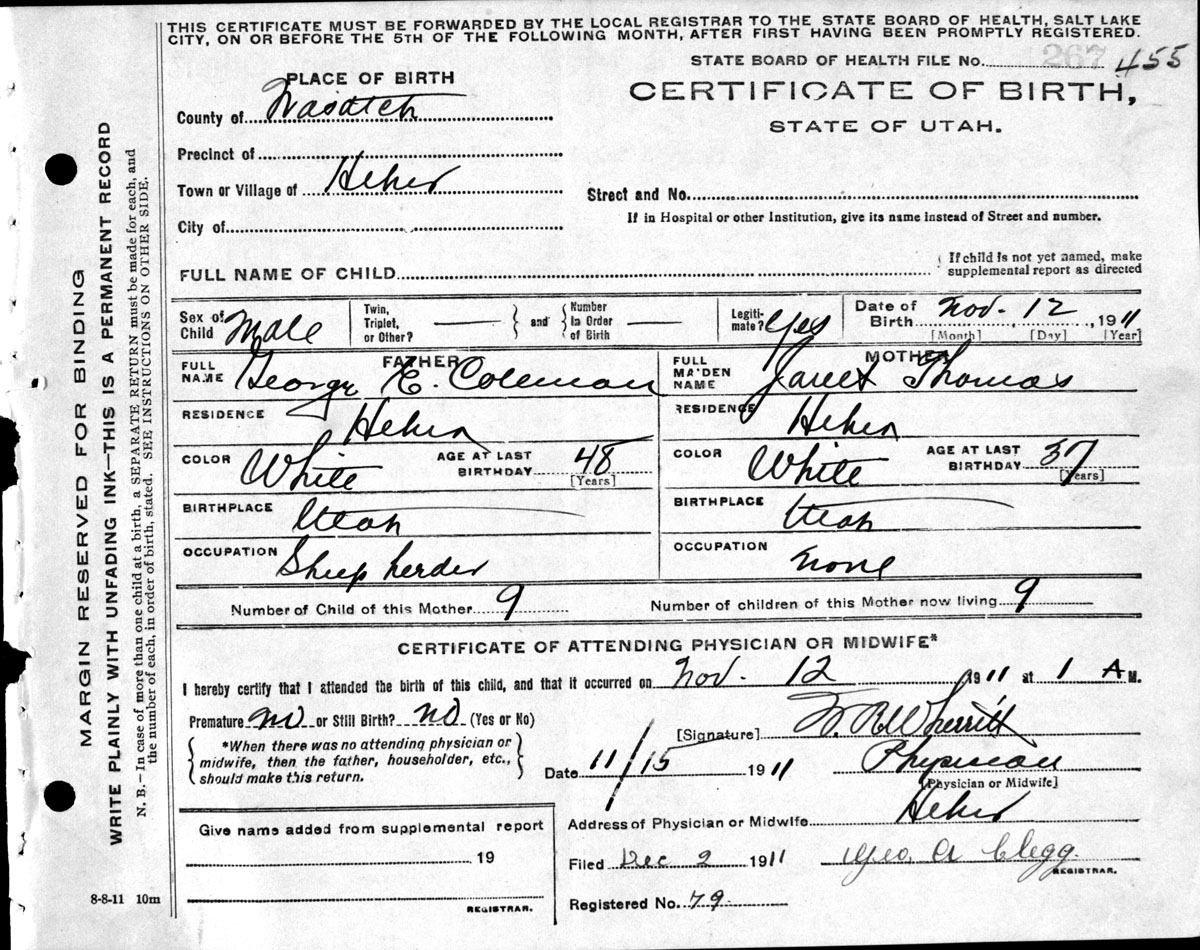 THIS CERTIFICATE MUST BE FORWARDED BY THE LOCAL REGISTRAR TO THE STATE BOARD OF HEALTH, SALT LAKE
CITY, ON OR BEFORE THE 5TH OF THE FOLLOWING MONTH, AFTER FIRST HAVING BEEN PROMPTLY REGISTERED.
STATE BOARD OF HEALTH FILE No. 267 455
PLACE OF BIRTH
CERTIFICATE OF BIRTH,
County of Wasatch
STATE OF UTAH.
Precinct of
Town or Village of Heber
Street and No.
If in Hospital or other Institution, give its name instead of Street and number.
City of
FULL NAME OF CHILD
If child is not yet named, make
supplemental report as directed
Sex of Child Male
Twin, Triplet, or Other? and Number in Order of Birth
Legiti-mate? Yes
Date of Birth Nov. 12, 1911
[Month] [Day] [Year]
FATHER
MOTHER
FULL NAME George E. Coleman
FULL MAIDEN NAME Janet Thomas
RESIDENCE Heber
RESIDENCE Heber
COLOR White AGE AT LAST BIRTHDAY 48 [Years]
COLOR White AGE AT LAST BIRTHDAY 37 [Years]
BIRTHPLACE Utah
BIRTHPLACE Utah
OCCUPATION Sheep herder
OCCUPATION None
Number of Child of this Mother 9 Number of children of this Mother now living 9
CERTIFICATE OF ATTENDING PHYSICIAN OR MIDWIFE*
I hereby certify that I attended the birth of this child, and that it occurred on Nov. 12 1911 at 1 A M.
Premature no or Still Birth? no (Yes or No)
[Signature] W. R. Wherritt
*When there was no attending physician or
midwife, then the father, householder, etc.,
should make this return.
Date 11/15 1911 Physician
[Physician or Midwife]
Give name added from supplemental report
19
REGISTRAR.
Address of Physician or Midwife Heber
Filed Dec 2 1911 Geo. A Clegg.
REGISTRAR.
Registered No. 79
8-8-11 10m
MARGIN RESERVED FOR BINDING
WRITE PLAINLY WITH UNFADING INK—THIS IS A PERMANENT RECORD
N. B.—In case of more than one child at a birth, a SEPARATE RETURN must be made for each, and
the number of each, in order of birth, stated. SEE INSTRUCTIONS ON OTHER SIDE.